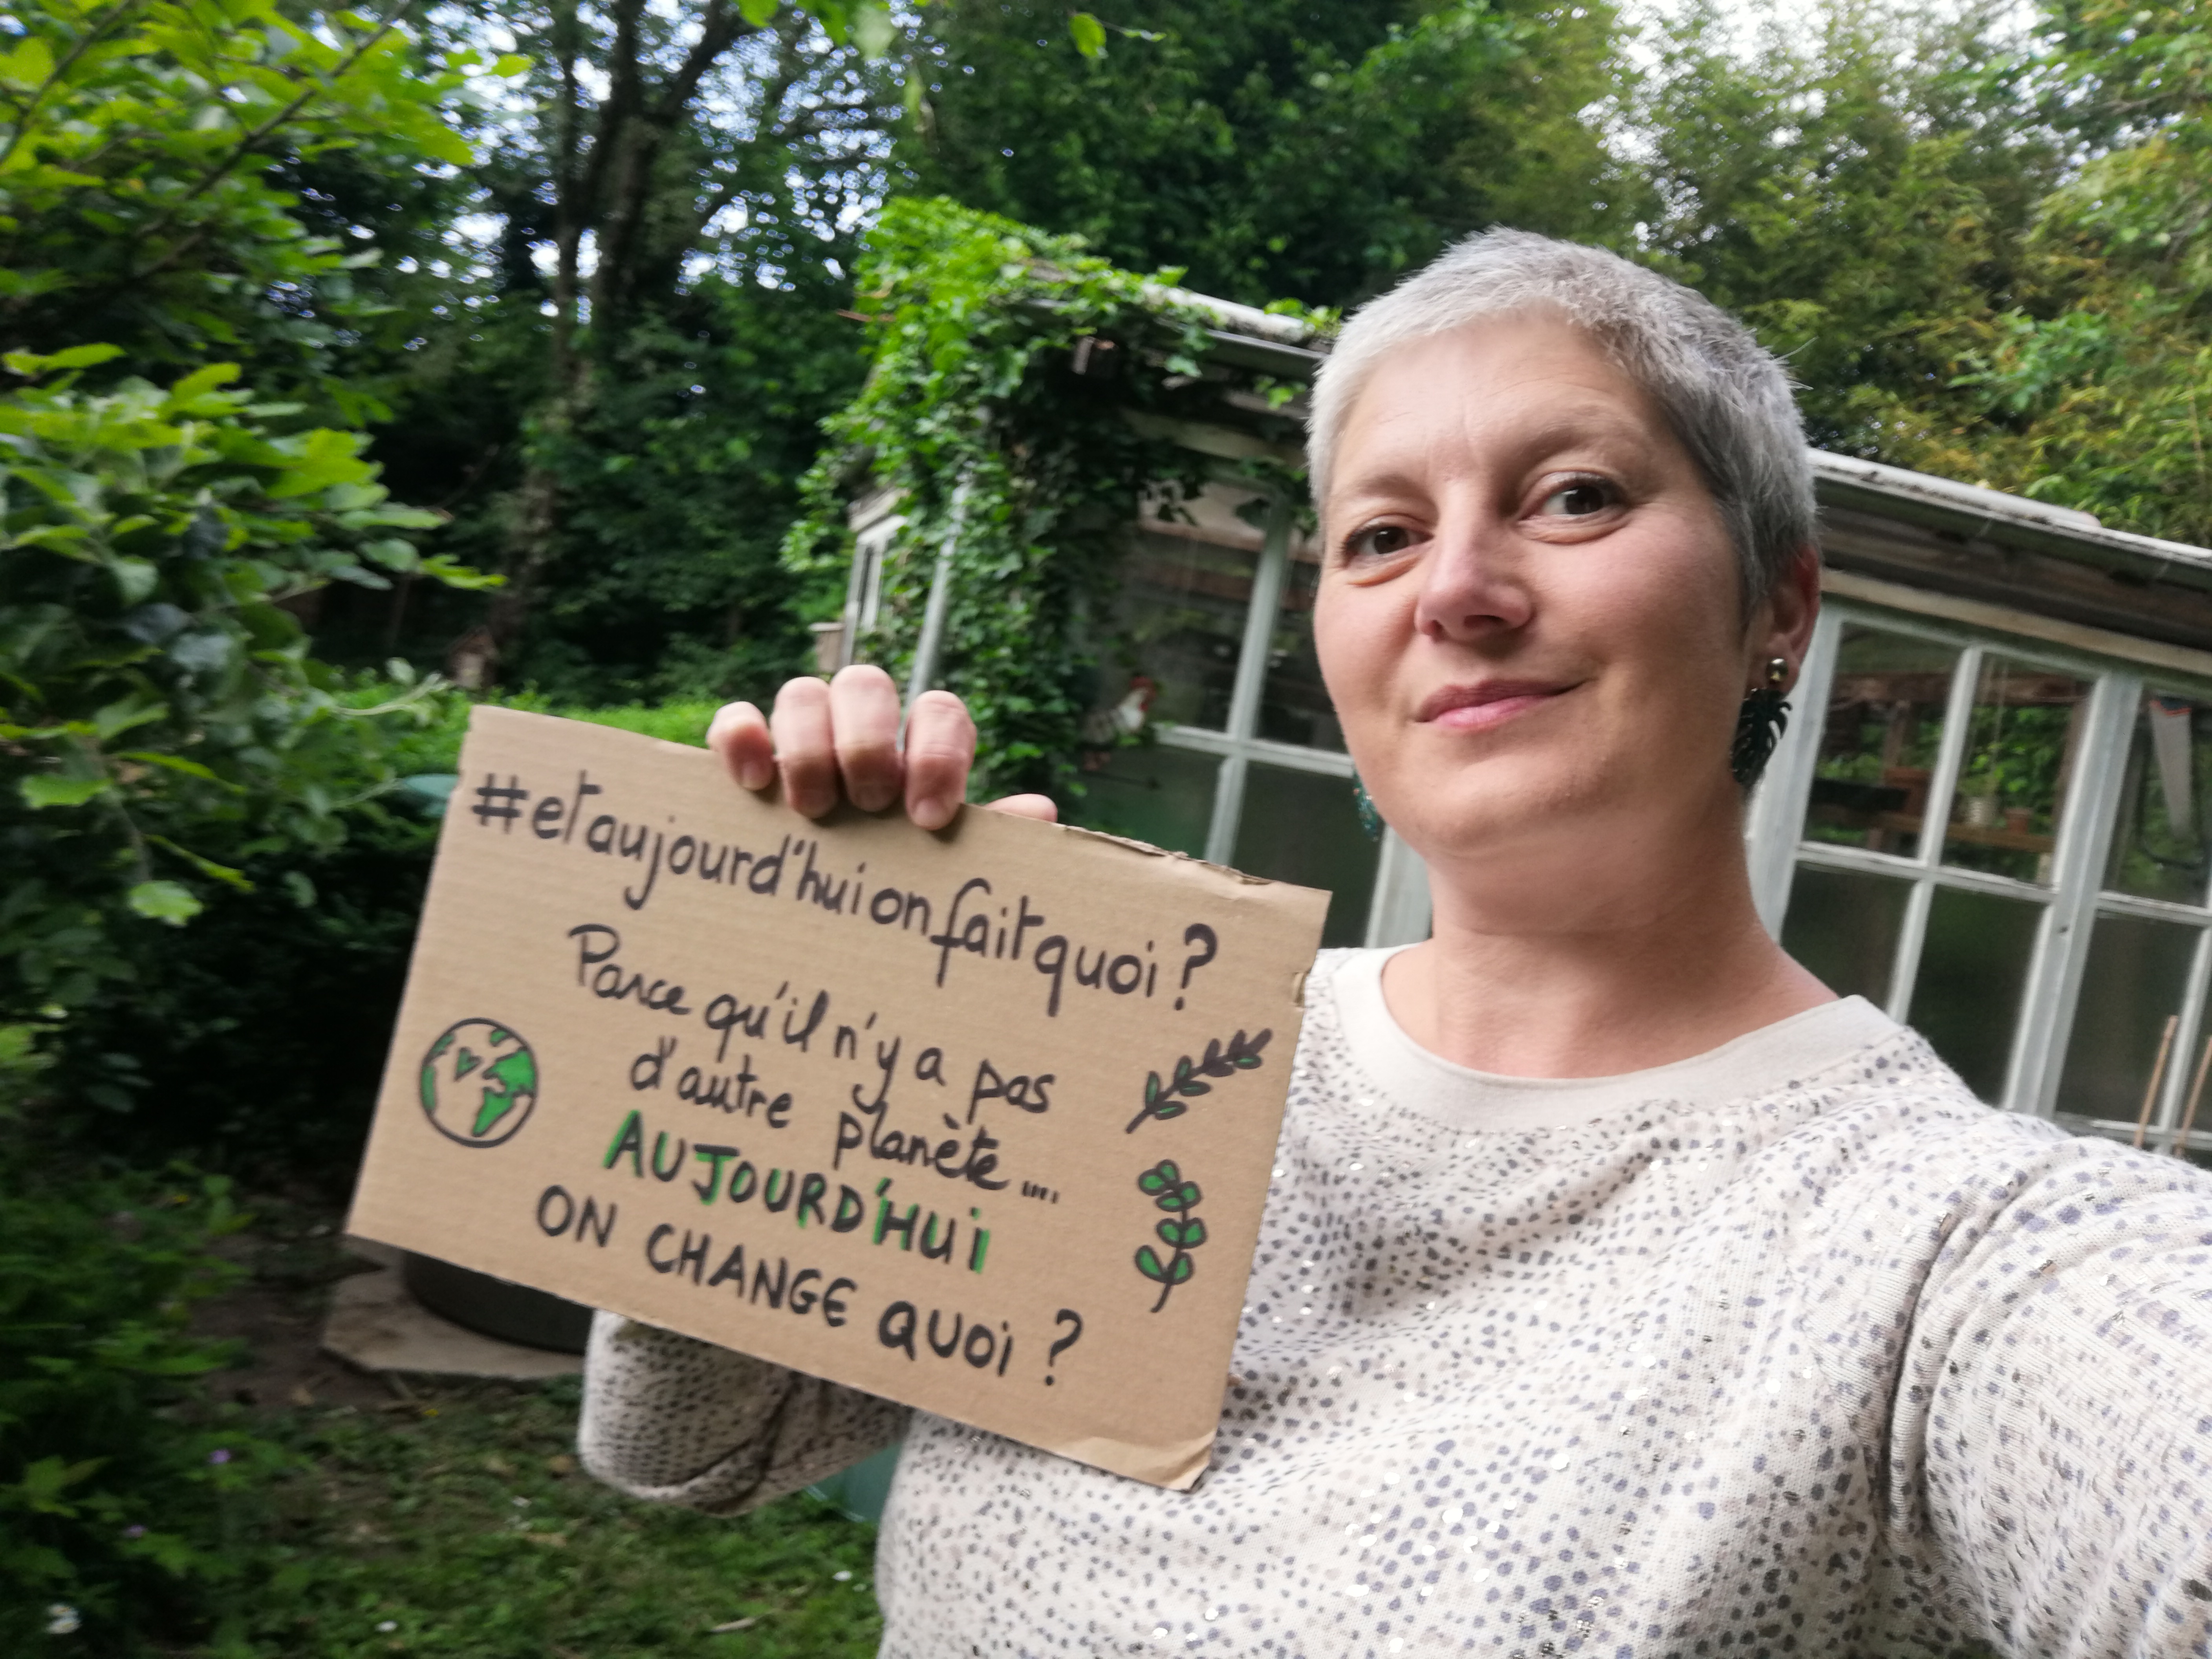 #etaujourd'huionfaitquoi?
Parce qu'il n'y a pas
d'autre planète....
AUJOURD'HUi
ON CHANGE QUOi ?